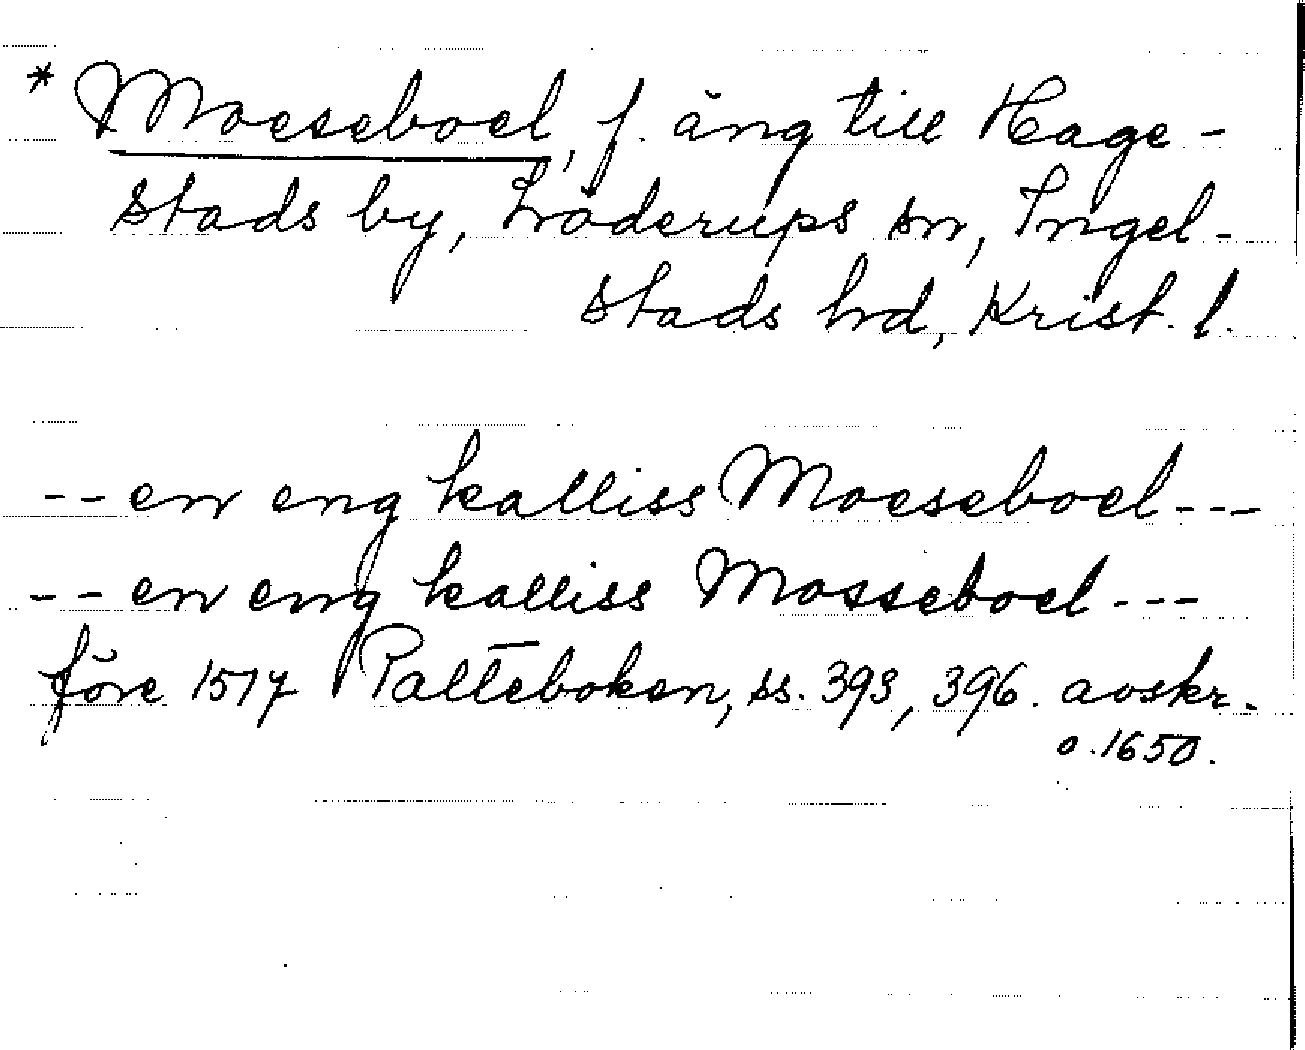 * Moeseboel, f. äng till Hage-
stads by, Löderups sn, Ingel-
stads hrd, Krist. l.
-- en eng kalliss Moeseboel ---
-- en eng kalliss Mosseboel ---
före 1517 Palteboken, ss. 393, 396. avskr.
o. 1650.